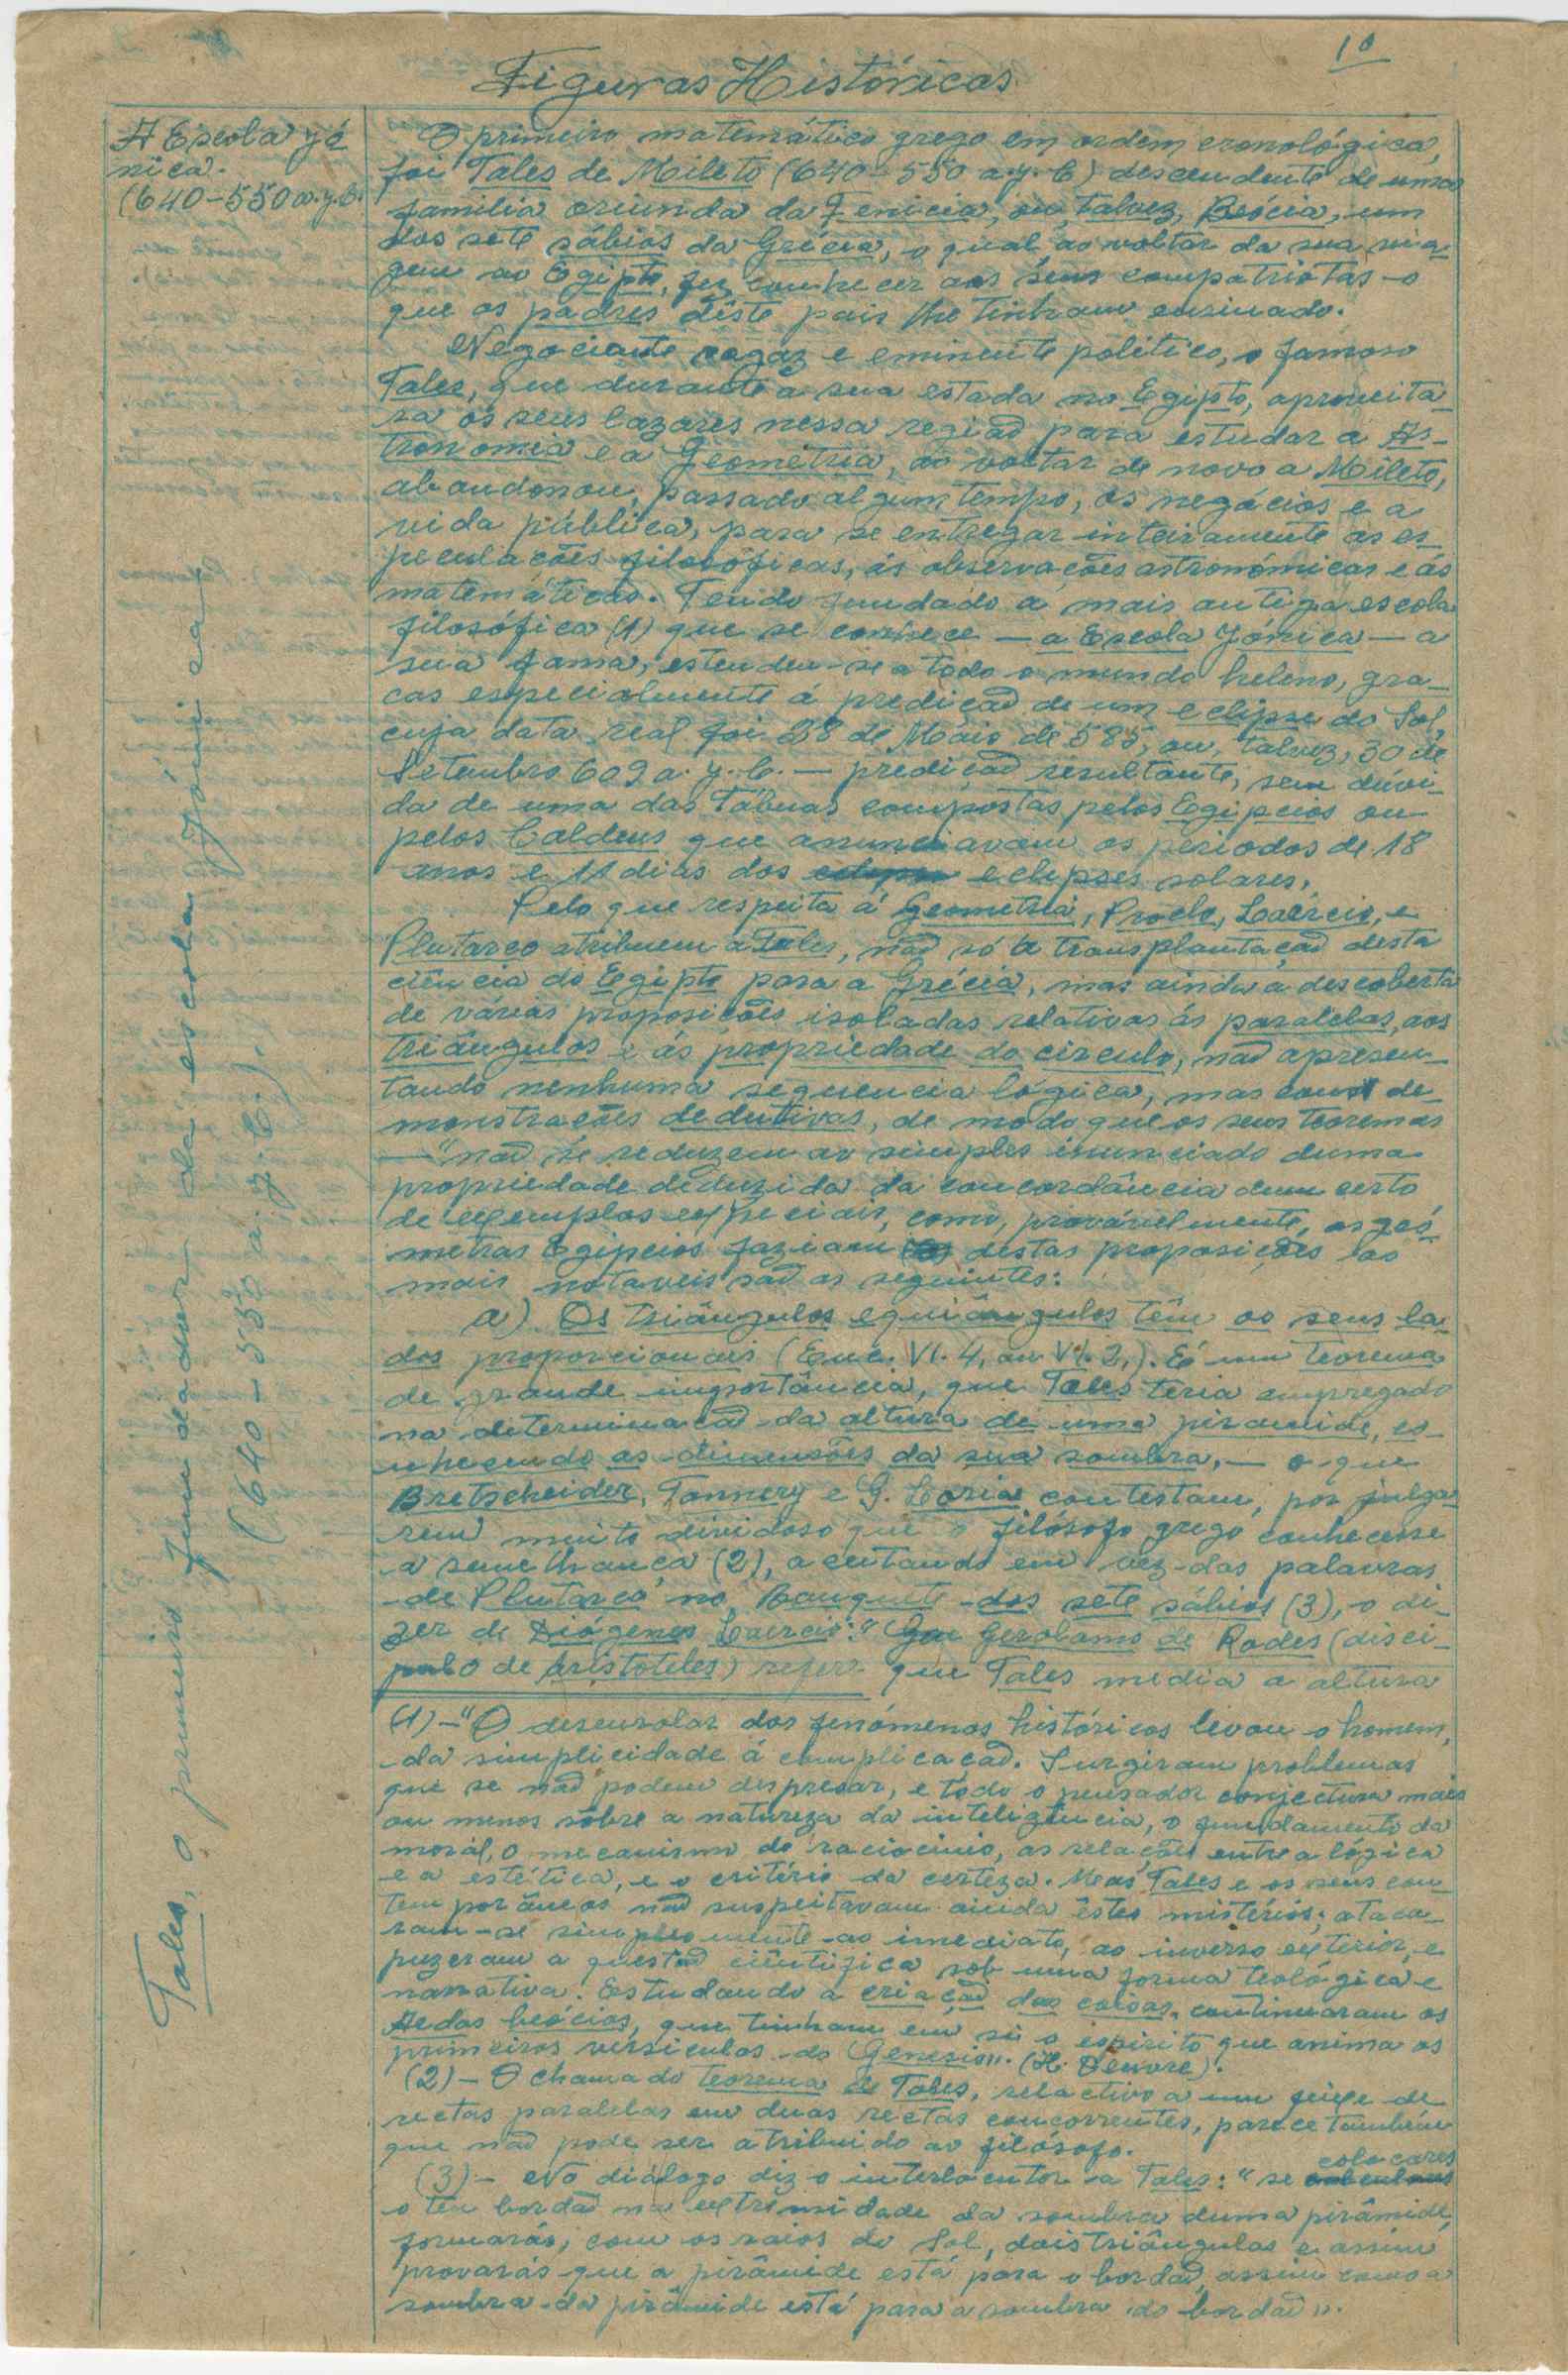 10
Figuras Históricas
A Escola Jó
nica.
(640-550 a.J.C.
Tales, o primeiro fundador da escola Jónica
(640-550 a.J.C.).
O primeiro matemático grego em ordem cronológica,
foi Tales de Mileto (640-550 a.J.C) descendente de uma
familia oriunda da Fenicia, ou, talvez, Beócia, um
dos sete sábios da Grécia, o qual ao voltar da sua via-
gem ao Egipto, fez conhecer aos seus compatriotas o
que os padres dêste pais lhe tinham ensinado.
Negociante sagaz e eminente politico, o famoso
Tales, que durante a sua estada no Egipto, aproveita-
ra os seus lazares nessa região para estudar a As-
tronomia e a Geometria, ao voltar de novo a Mileto,
abandonou, passado algum tempo, os negócios e a
vida pública, para se entregar inteiramente as es-
peculações filosóficas, ás observações astronómicas e ás
matemáticas. Tendo fundado a mais antiga escola
filosófica (1) que se conhece — a Escola Jónica — a
sua fama, estendeu-se a todo o mundo heleno, gra-
cas especialmente á predição de um eclipse do Sol,
cuja data real foi 28 de Maio de 585, ou, talvez, 30 de
Setembro 609 a. J. C. — predição resultante, sem dúvi-
da de uma das Tábuas compostas pelos Egipcios ou
pelos Caldeus que anunciavam os periodos de 18
anos e 11 dias dos eclipses solares.
Pelo que respeita á Geometria, Proclo, Laércio, e
Plutarco atribuem a Tales, não só a transplantação desta
ciência do Egipto para a Grécia, mas ainda a descoberta
de várias proposições isoladas relativas ás paralelas, aos
triângulos e ás propriedade do circulo, não apresen-
tando nenhuma sequencia lógica, mas com de-
monstrações dedutivas, de modo que os seus teoremas
— "não se reduzem ao simples enunciado duma
propriedade deduzida da concordância dum certo
de exemplos especiais, como, provávelmente, os geó-
metras Egipcios faziam destas proposições as
mais notaveis são as seguintes:
a) Os triângulos equiângulos têm os seus la-
dos proporcionais (Euc. VI. 4, ou VI. 2,). É um teorema
de grande importância, que Tales teria empregado
na determinação da altura de uma piramide, co-
nhecendo as dimensões da sua sombra, — o que
Bretscheider, Tannery e G. Loria contestam, por julga-
rem muito dividoso que o filósofo grego conhecesse
a semelhança (2), aceitando em vez das palavras
de Plutarco no Banquete dos sete sábios (3), o di-
zer de Diógenes Laercio: "Gerolamo de Rodes (disci-
pulo de Aristoteles) refere que Tales media a altura
(1) - "O desenrolar dos fenómenos históricos levou o homem,
da simplicidade á complicação. Surgiram problemas
que se não podem despresar, e todo o pensador conjectura mais
ou menos sôbre a natureza da inteligência, o fundamento da
morál, o mecanismo do raciocinio, as relações entre a lógica
e a estética, e o critério da certeza. Mas Tales e os seus con-
temporâneos não suspeitavam ainda êstes mistérios; ataca-
ram-se simplesmente ao imediato, ao inverso exterior, e
puzeram a questão ciêntifica sob uma forma teológica e
narrativa. Estudando a criação das coisas, continuaram os
Aedos beócios, que tinham em si o espirito que anima os
primeiros versiculos do Genesis". (H.
(2) - O chamado teorema de Tales, relactivo a um feixe de
rectas paralelas em duas rectas concorrentes, parece tambêm
que não pode ser atribuido ao filósofo.
(3) - No diálogo diz o interlocutor a Tales: "se colocares
o teu bordão na extremidade da sombra duma pirâmide,
formarás, com os raios do Sol, dois triângulos e assim
provarás que a pirâmide está para o bordão, assim como a
sombra da pirâmide está para a sombra do bordão".